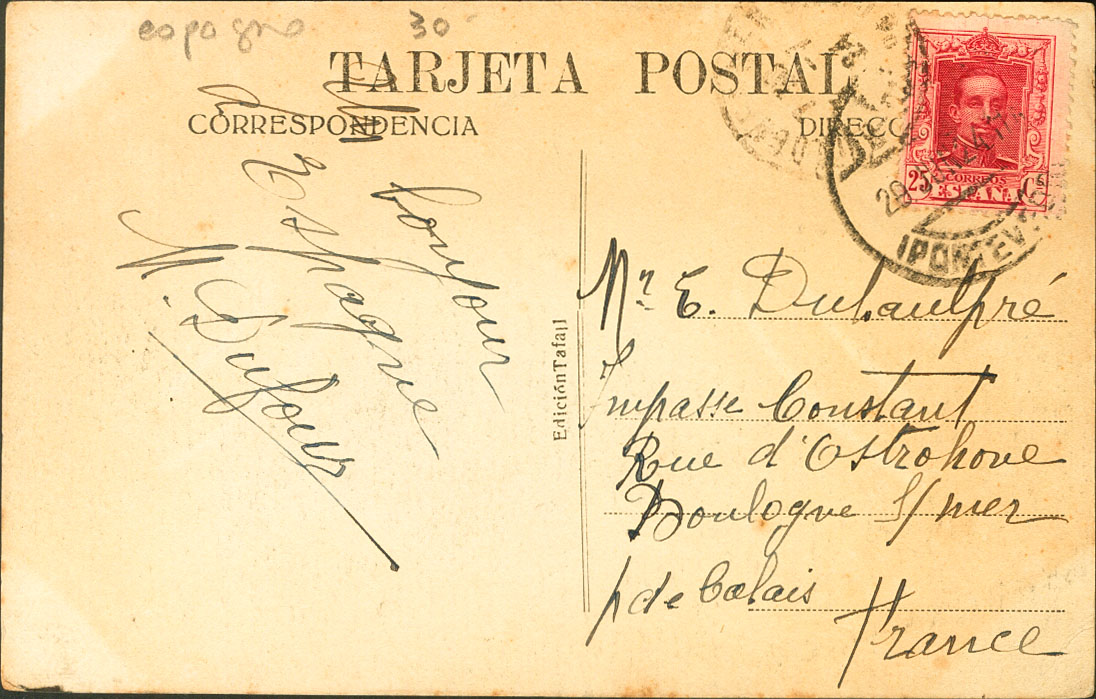 espagne 30
TARJETA POSTAL
CORRESPONDENCIA
Un bonjour
d'Espagne
M. Dufour
Edición Tafall
25 CORREOS Cs
ESPAÑA
(PONTEV
Mr E. Duhautpré
Impasse Constant
Rue d'Ostrohove
Boulogne s/mer
p de Calais
France